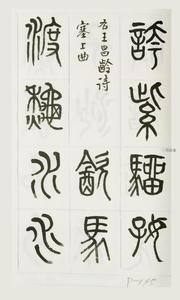 誇紫騮好
右王昌齡诗
塞上曲
飲馬
渡龝水水